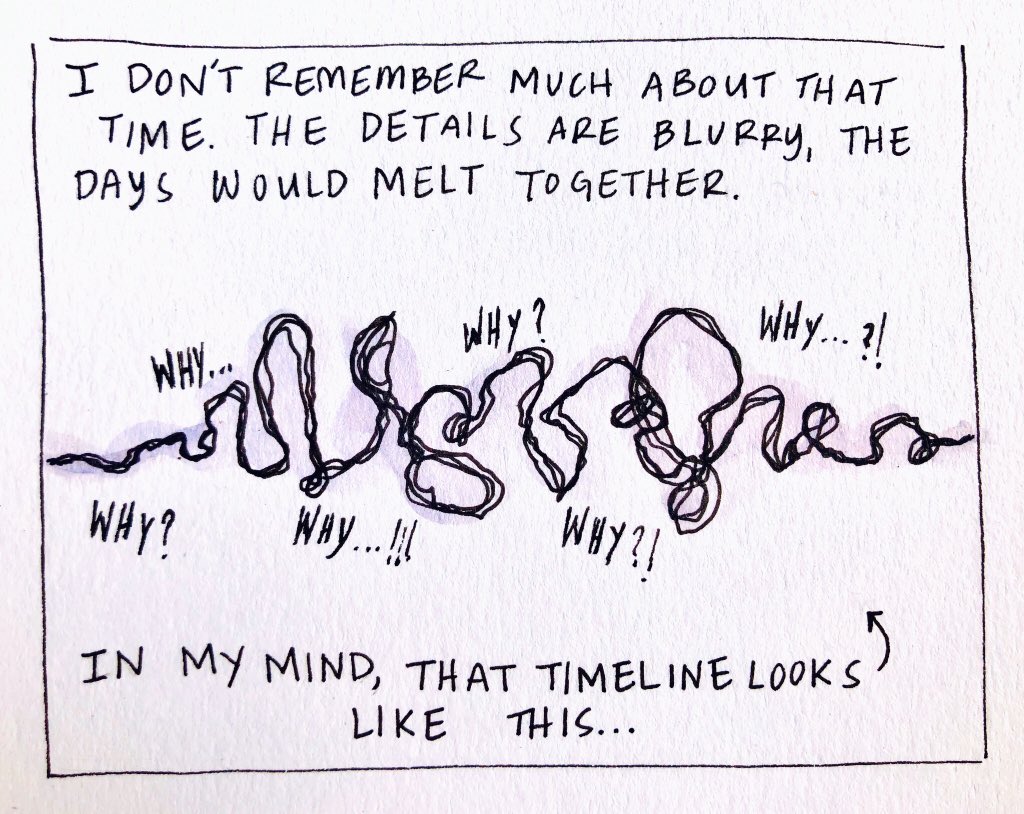 I DON'T REMEMBER MUCH ABOUT THAT
TIME. THE DETAILS ARE BLURRY, THE
DAYS WOULD MELT TOGETHER.
WHY...
WHY?
WHY...?!
WHY?
WHY...!!!
WHY?!
IN MY MIND, THAT TIMELINE LOOKS
LIKE THIS...